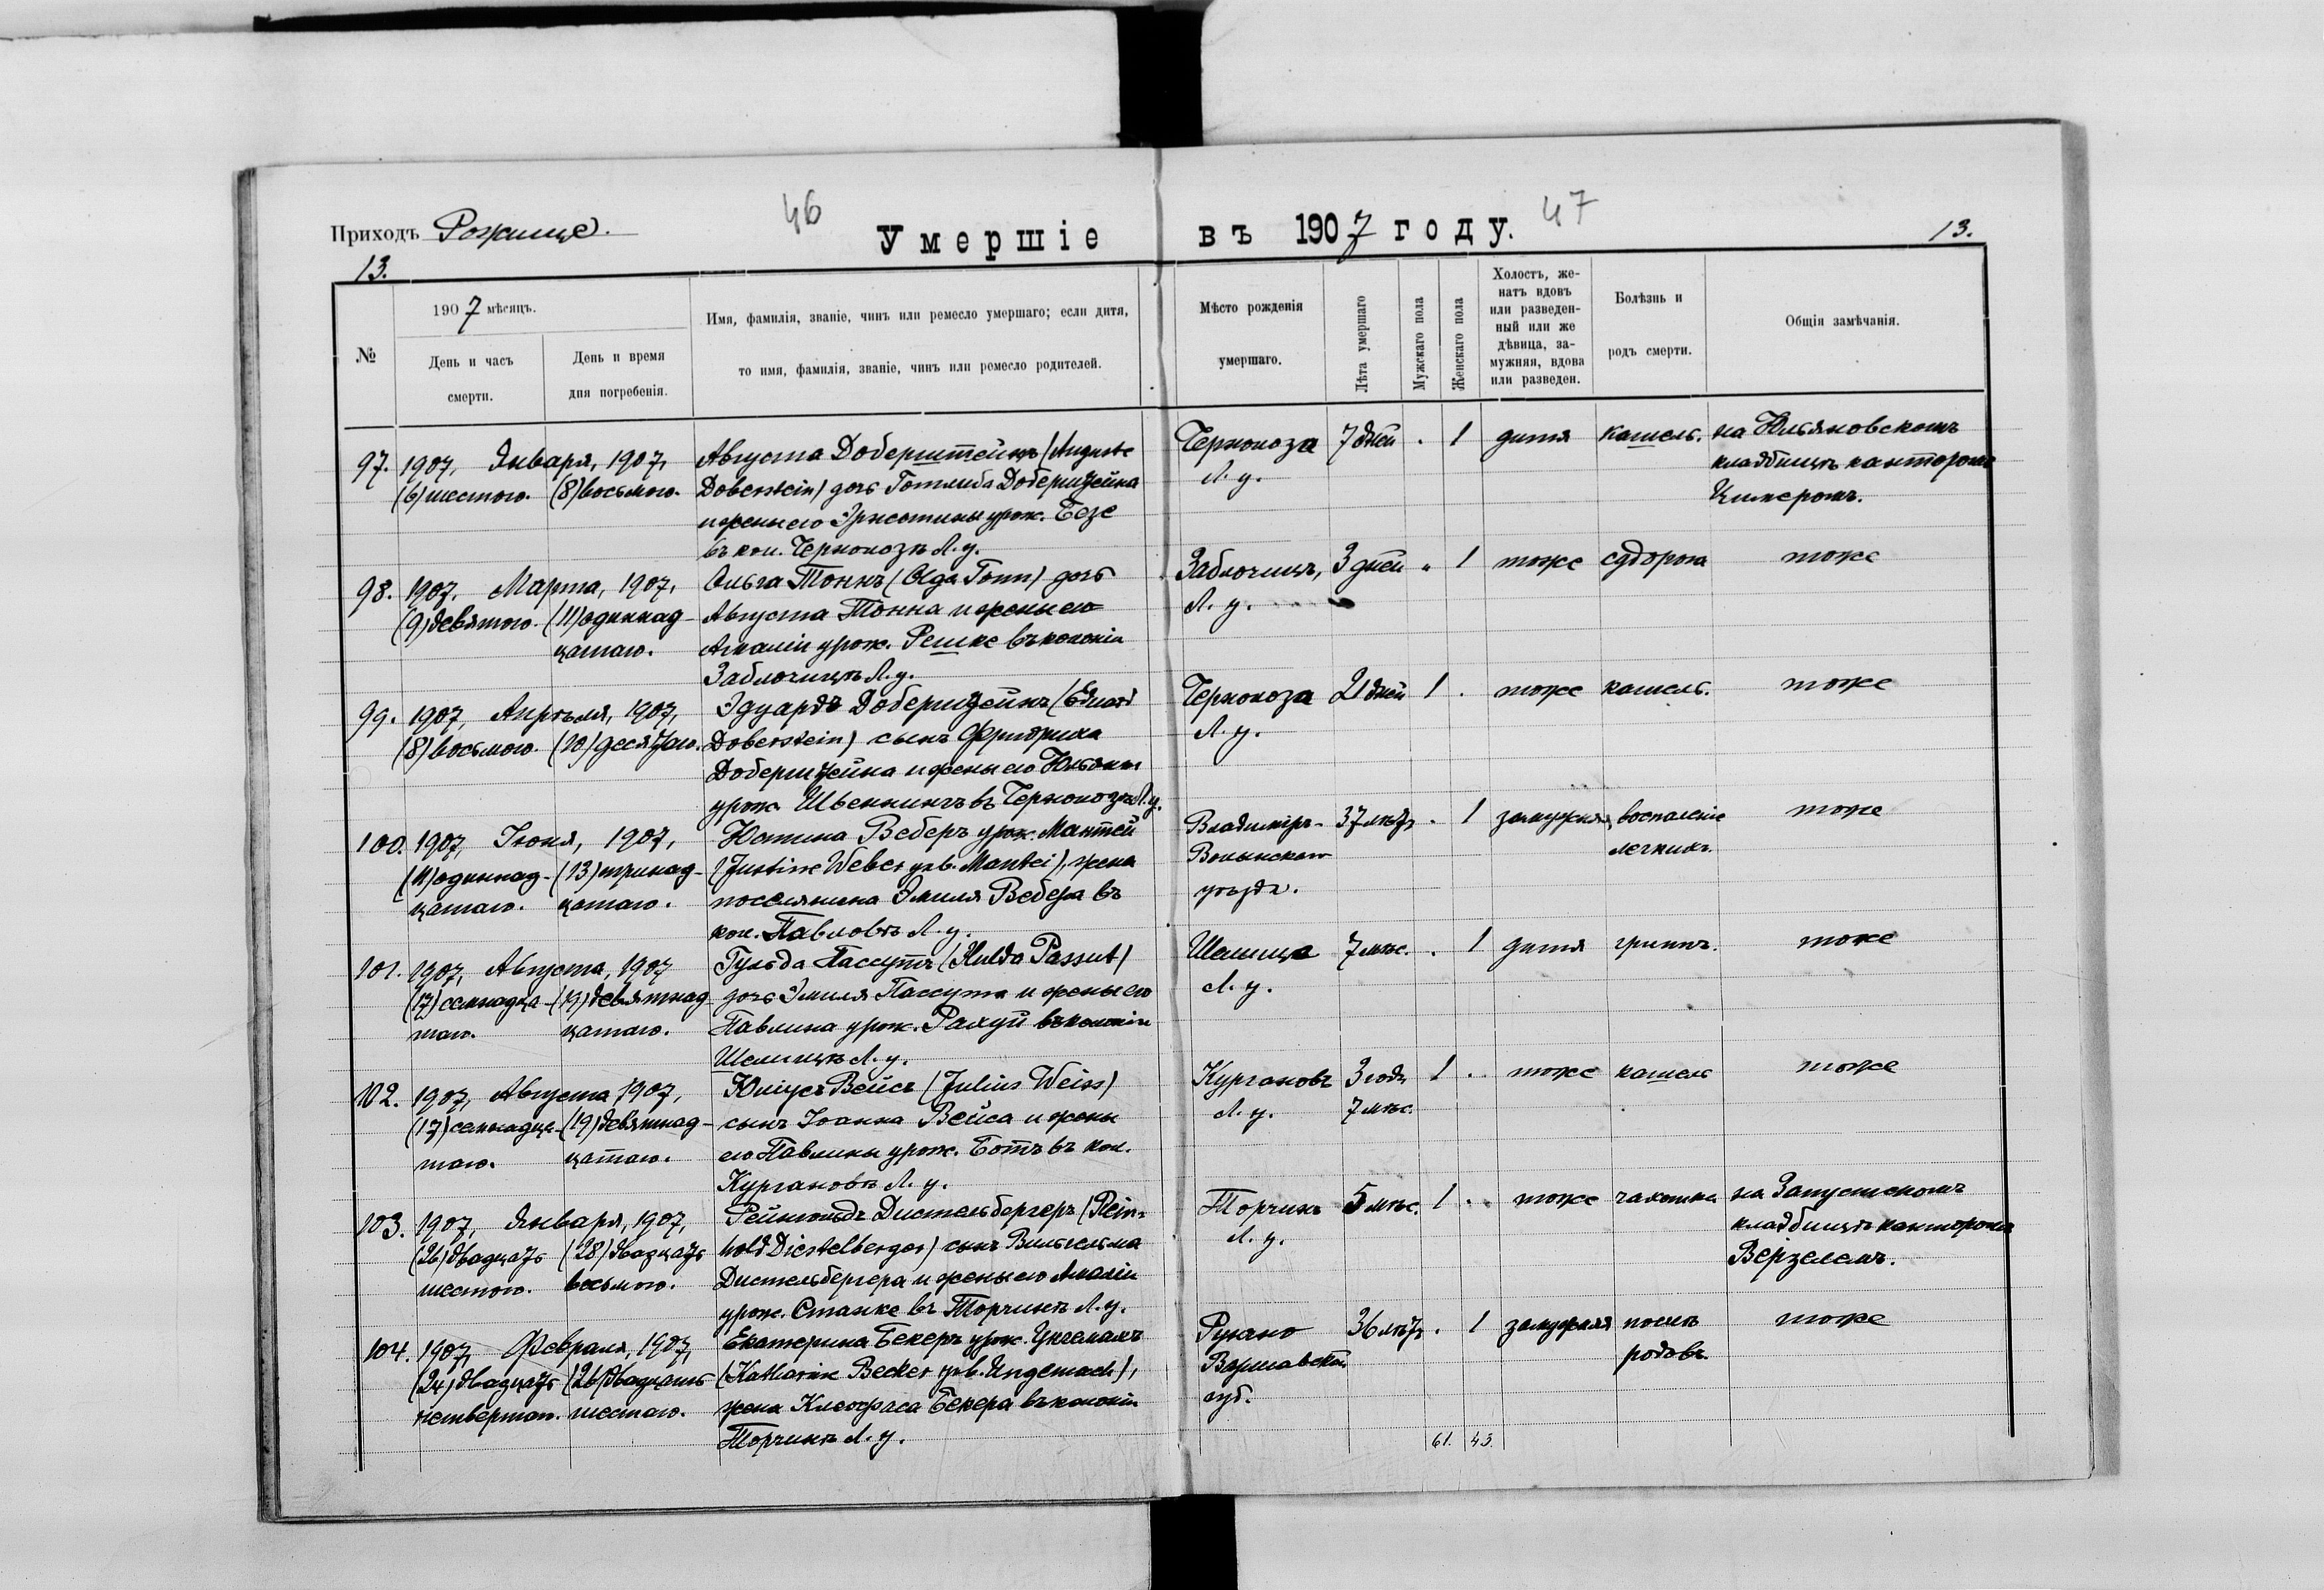 46
47
Приходъ Рожище.
Умершіе въ 1907 году.
13.
13.
№
1907 мѣсяцъ.
День и часъ смерти.
День и время дня погребенія.
Имя, фамилія, званіе, чинъ или ремесло умершаго; если дитя,
то имя, фамилія, званіе, чинъ или ремесло родителей.
Мѣсто рожденія умершаго.
Лѣта умершаго
Мужскаго пола
Женскаго пола
Холостъ, же-
натъ вдовъ
или разведен-
ный или же
дѣвица, за-
мужняя, вдова
или разведен.
Болѣзнь и родъ смерти.
Общія замѣчанія.
97. 1907, Января, 1907, Августа Доберштейнъ (Auguste Черномоза 7 дней . 1 дитя кашель. на Юльяновскомъ
(6) шестого. (8) восьмого. Doberstein) дочь Готлиба Доберштейна Л. у. кладбищѣ канторомъ
и жены его Эрнстины урож. Безе
въ кол. Черномозѣ Л. у.
98. 1907, Марта, 1907, Ольга Тоннъ (Olga Tonn) дочь Заблочицъ, 3 дней " 1 тоже судорога тоже
(9) девятого. (11) одиннад- Августа Тонна и жены его Л. у.
цатаго. Амаліи урож. Решке въ колоніи
Заблочицѣ Л. у.
99. 1907, Апрѣля, 1907, Эдуардъ Доберштейнъ (Eduard Черномоза 21 дней 1 . тоже кашель. тоже
(8) восьмого. (10) десятаго. Doberstein) сынъ Фридриха Л. у.
Доберштейна и жены его Юльяны
урож. Швеннингъ въ Черномозѣ Л. у.
100. 1907, Іюня, 1907, Юстина Веберъ урож. Мантей Владиміръ- 37 лѣтъ . 1 замужняя воспаленіе тоже
(11) одиннад- (13) тринад- (Justine Weber geb. Mantei), жена Волынскаго легкихъ.
цатаго. цатаго. поселянина Эмиля Вебера въ уѣзда.
кол. Павловѣ Л. у.
101. 1907, Августа, 1907 Гульда Пассутъ (Hulda Passut) Шелица 7 мѣс. . 1 дитя гриппъ. тоже
(17) семнадца- (19) девятнад- дочь Эмиля Пассута и жены его Л. у.
таго. цатаго. Павлина урож. Рахуй въ колоніи
Шелицѣ Л. у.
102. 1907, Августа, 1907, Юліусъ Вейсъ (Julius Weiss) Кургановъ 3 года 1 . тоже кашель тоже
(17) семнадца- (19) девятнад- сынъ Іоанна Вейса и жены Л. у. 7 мѣс.
таго. цатаго. его Павлины урож. Ботъ въ кол.
Кургановѣ Л. у.
103. 1907, Января, 1907, Рейнгольдъ Дистельбергеръ (Rein- Торчинъ 5 мѣс. 1 . тоже чахотка на Запустскомъ
(26) двадцать (28) двадцать hold Diestelberger) сынъ Вильгельма Л. у. кладбищѣ канторомъ
шестого. восьмого. Дистельбергера и жены его Амаліи Верзелемъ.
урож. Станке въ Торчинѣ Л. у.
104. 1907, Февраля, 1907, Екатерина Бекеръ урож. Унгемахъ 36 лѣтъ . 1 замужняя послѣ тоже
(24) двадцать (26) двадцать (Katharine Becker geb. Ungemach), Варшавской родовъ.
четвертаго. шестаго. жена Клеофаса Бекера въ колоніи губ.
Торчинѣ Л. у.
61. 43.